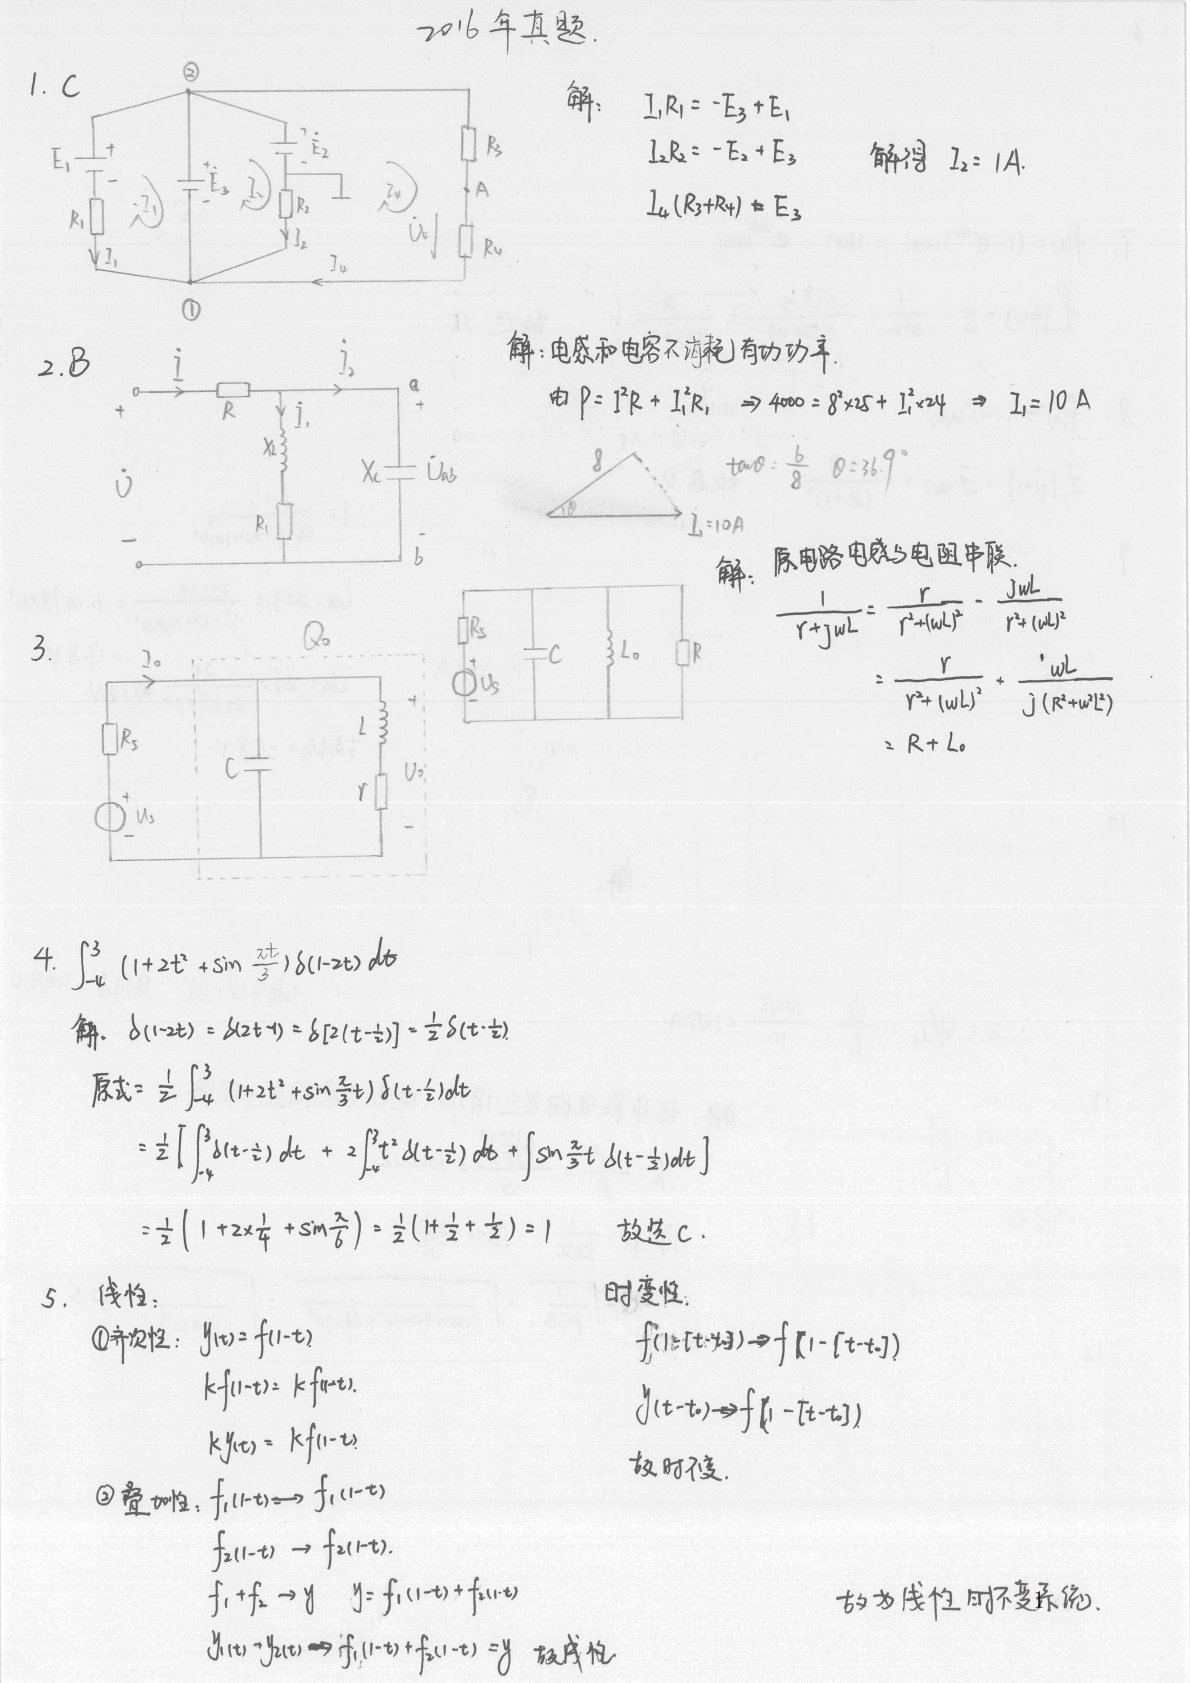 2016年真题.
1. C
②
E₁
+
-
R₁
I₁
I₁
+
Ė₃
-
I₂
+
Ė₂
-
R₂
I₂
I₄
R₃
A
U̇₄
R₄
I₄
①
解: I₁R₁ = -E₃ + E₁
I₂R₂ = -E₂ + E₃ 解得 I₂ = 1A.
I₄(R₃+R₄) = E₃
2. B
İ
İ₂
a
+
R
İ₁
+
X_L
X_C
U̇ab
U̇
R₁
-
-
b
解: 电感和电容不消耗有功功率.
由 P = I²R + I₁²R₁ ⇒ 4000 = 8²×25 + I₁²×24 ⇒ I₁ = 10 A
8
θ
I₁=10A
tanθ = 6/8 θ = 36.9°
3.
Q₀
I₀
Rs
+
Us
-
C
L
r
+
U₀
-
Rs
+
Us
-
C
L₀
R
解: 原电路电感与电阻串联.
1/(r+jwL) = r/(r²+(wL)²) - jwL/(r²+(wL)²)
= r/(r²+(wL)²) + wL/(j(R²+w²L²))
= R + L₀
4. ∫₋₄³ (1+2t²+sin πt/3) δ(1-2t) dt
解. δ(1-2t) = δ(2t-1) = δ[2(t-½)] = ½ δ(t-½).
原式 = ½ ∫₋₄³ (1+2t²+sin π/3 t) δ(t-½) dt
= ½ [∫₋₄³ δ(t-½) dt + 2∫₋₄³ t² δ(t-½) dt + ∫ sin π/3 t δ(t-½) dt]
= ½ (1 + 2×¼ + sin π/6) = ½ (1+½+½) = 1 故选 C.
5. 线性:
①齐次性: y(t) = f(1-t)
kf(1-t) = kf(1-t).
ky(t) = kf(1-t)
②叠加性: f₁(1-t) → f₁(1-t)
f₂(1-t) → f₂(1-t).
f₁+f₂ → y y = f₁(1-t)+f₂(1-t)
y₁(t)+y₂(t) → f₁(1-t)+f₂(1-t) = y 故线性
时变性:
f(1-[t-t₀]) → f(1-[t-t₀])
y(t-t₀) → f(1-[t-t₀])
故时不变.
故为线性时不变系统.